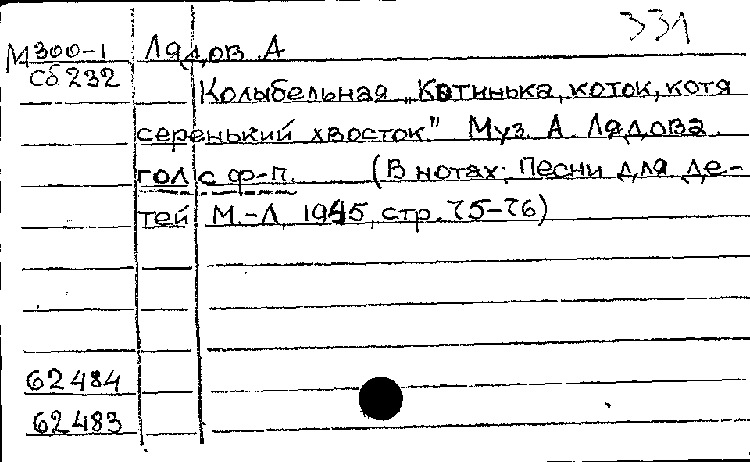 331
М300-1 Лядов А
Сб232
Колыбельная „Котинька, коток, котя
серенький хвосток." Муз. А. Лядова.
гол. с ф-п. (В нотах: Песни для де-
тей М.-Л, 1945, стр. 75-76)
62484
62483